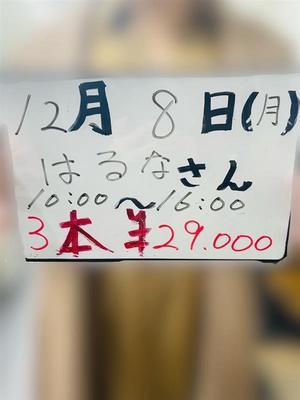 12月 8日(月)
はるなさん
10:00~16:00
3本 ¥29.000